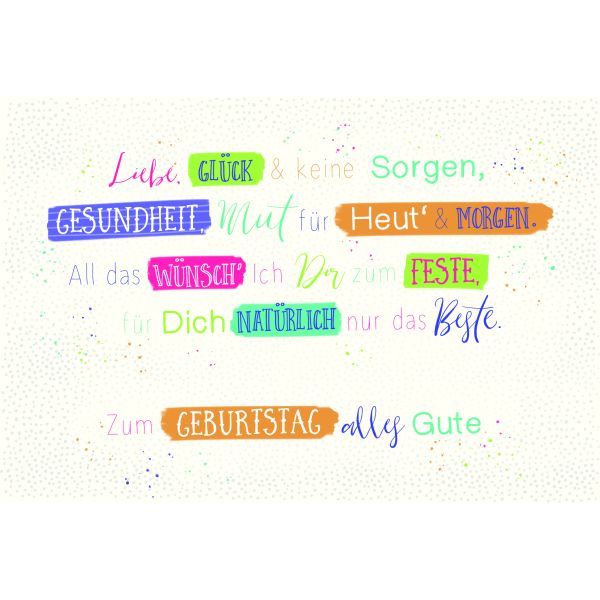 Liebe, GLÜCK & keine Sorgen,
GESUNDHEIT, Mut für Heut' & MORGEN.
All das WÜNSCH' Ich Dir zum FESTE,
für Dich NATÜRLICH nur das Beste.
Zum GEBURTSTAG alles Gute